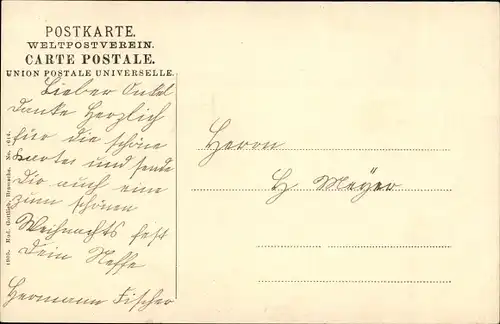 POSTKARTE.
WELTPOSTVEREIN.
CARTE POSTALE.
UNION POSTALE UNIVERSELLE.
Lieber Onkel
danke herzlich
für die schöne
Karte und sende
Dir auch eine
zum schönen
Weihnachts fest
Dein Neffe
Hermann Fischer
Herrn
H. Meÿer